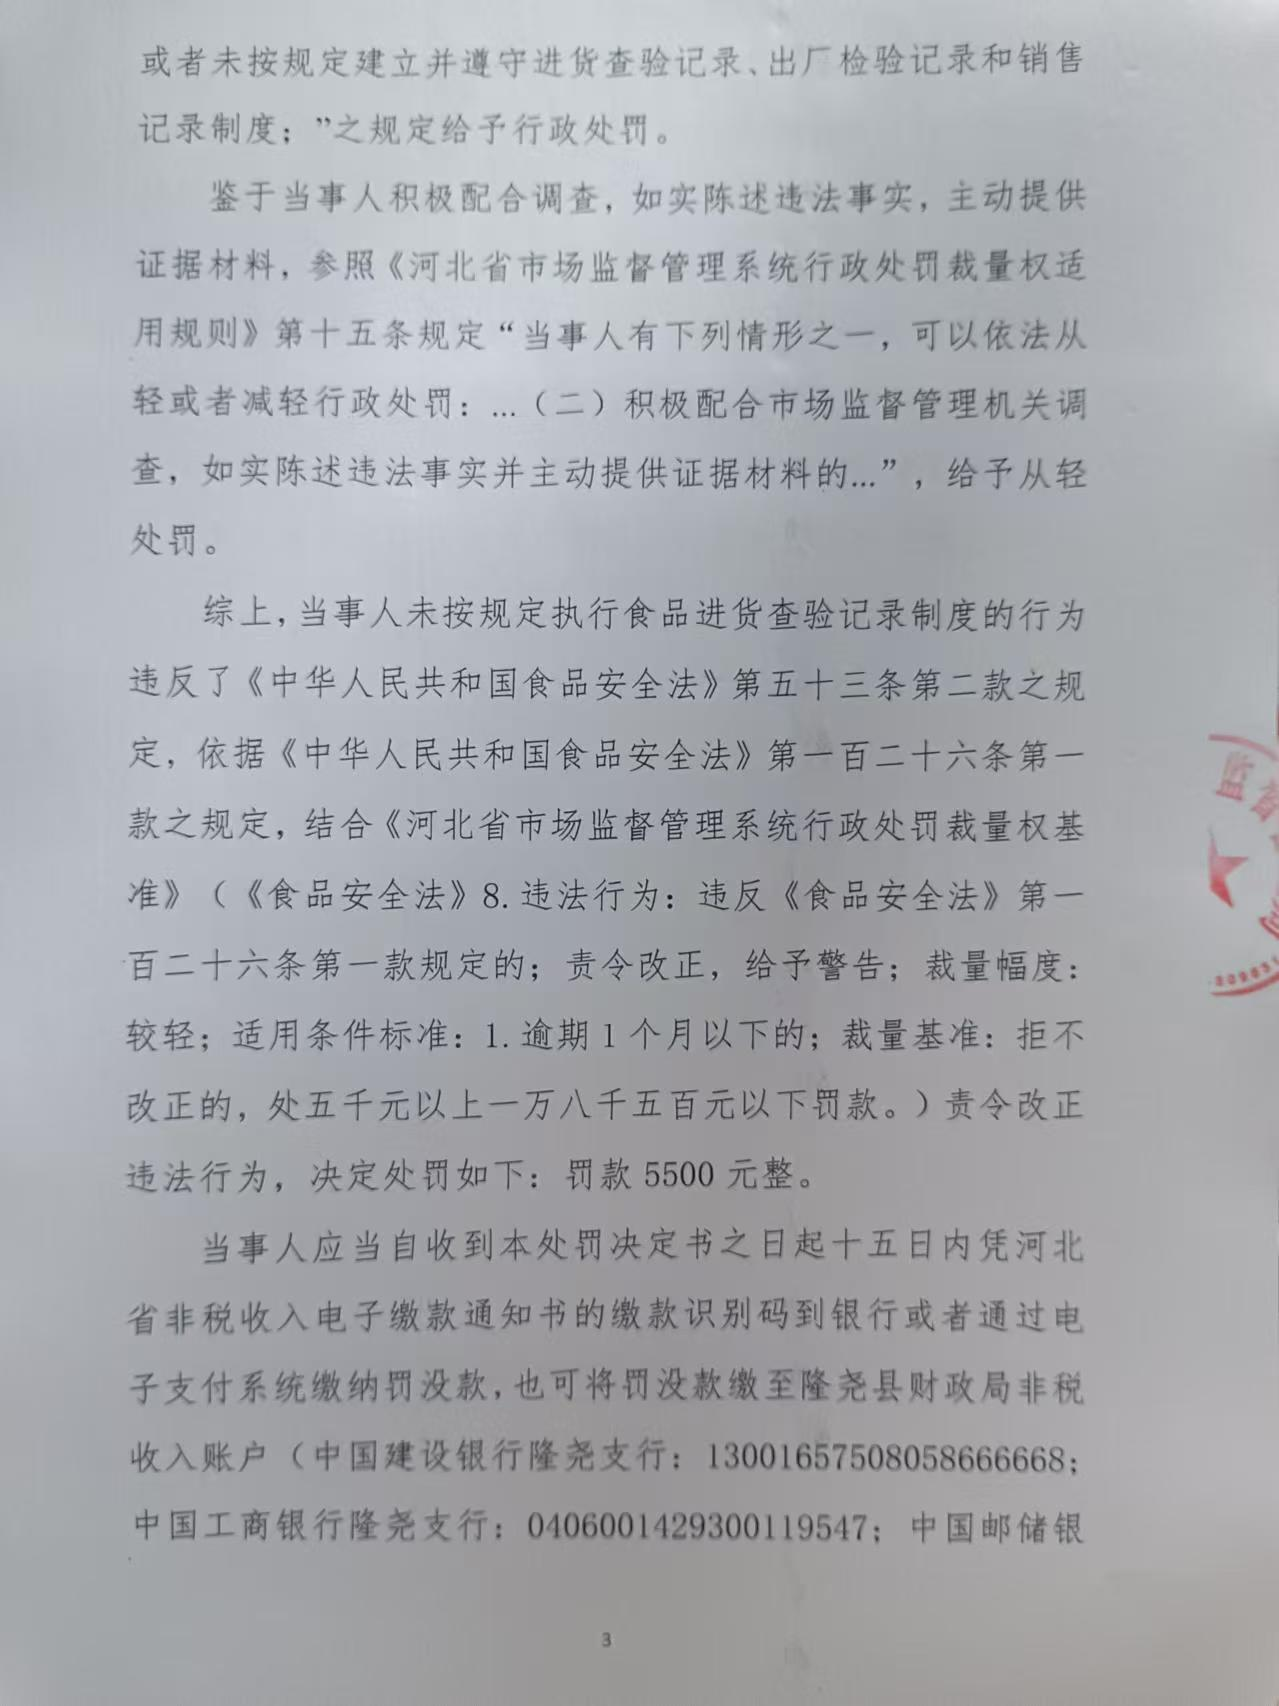 或者未按规定建立并遵守进货查验记录、出厂检验记录和销售
记录制度；”之规定给予行政处罚。
鉴于当事人积极配合调查，如实陈述违法事实，主动提供
证据材料，参照《河北省市场监督管理系统行政处罚裁量权适
用规则》第十五条规定“当事人有下列情形之一，可以依法从
轻或者减轻行政处罚：…（二）积极配合市场监督管理机关调
查，如实陈述违法事实并主动提供证据材料的…”，给予从轻
处罚。
综上，当事人未按规定执行食品进货查验记录制度的行为
违反了《中华人民共和国食品安全法》第五十三条第二款之规
定，依据《中华人民共和国食品安全法》第一百二十六条第一
款之规定，结合《河北省市场监督管理系统行政处罚裁量权基
准》（《食品安全法》8.违法行为：违反《食品安全法》第一
百二十六条第一款规定的；责令改正，给予警告；裁量幅度：
较轻；适用条件标准：1.逾期1个月以下的；裁量基准：拒不
改正的，处五千元以上一万八千五百元以下罚款。）责令改正
违法行为，决定处罚如下：罚款 5500 元整。
当事人应当自收到本处罚决定书之日起十五日内凭河北
省非税收入电子缴款通知书的缴款识别码到银行或者通过电
子支付系统缴纳罚没款，也可将罚没款缴至隆尧县财政局非税
收入账户（中国建设银行隆尧支行：13001657508058666668；
中国工商银行隆尧支行：0406001429300119547；中国邮储银
3
监督